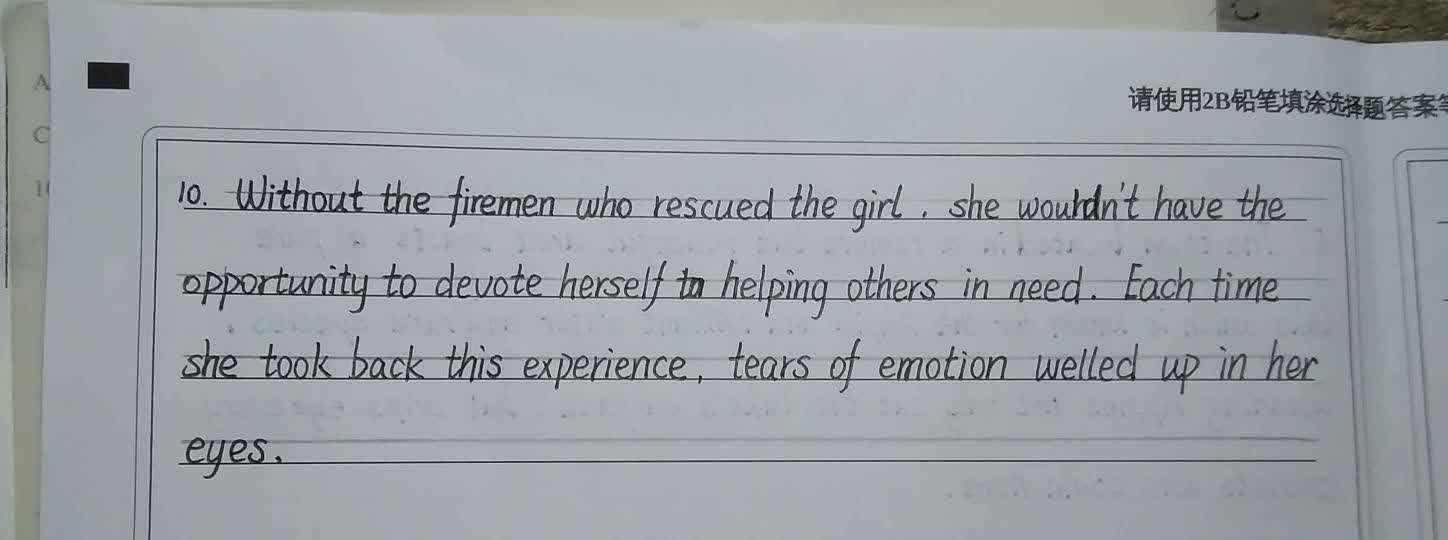 请使用2B铅笔填涂选择题答案等
10. Without the firemen who rescued the girl, she wouldn't have the
opportunity to devote herself to helping others in need. Each time
she took back this experience, tears of emotion welled up in her
eyes.